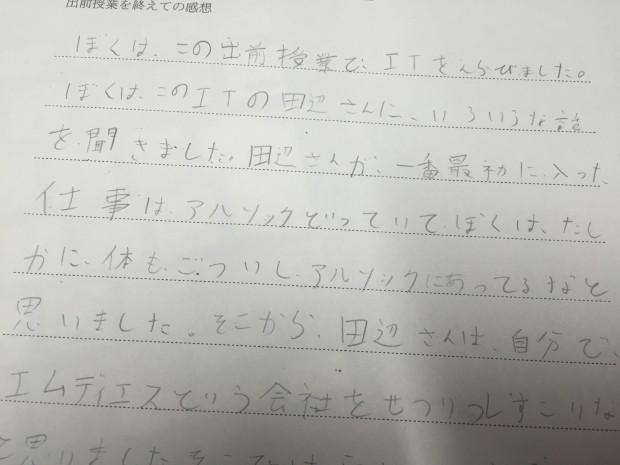 出前授業を終えての感想
ぼくは、この出前授業で、ITをえらびました。
ぼくは、このITの田辺さんに、いろいろな話
を聞きました。田辺さんが、一番最初に、入った
仕事は、アルソックどっていて、ぼくは、たし
かに、体も、ごついし、アルソックにあってるなと
思いました。そこから、田辺さんは、自分で、
エムディエスという会社をせつりつしすごいな
と思いましたそこ